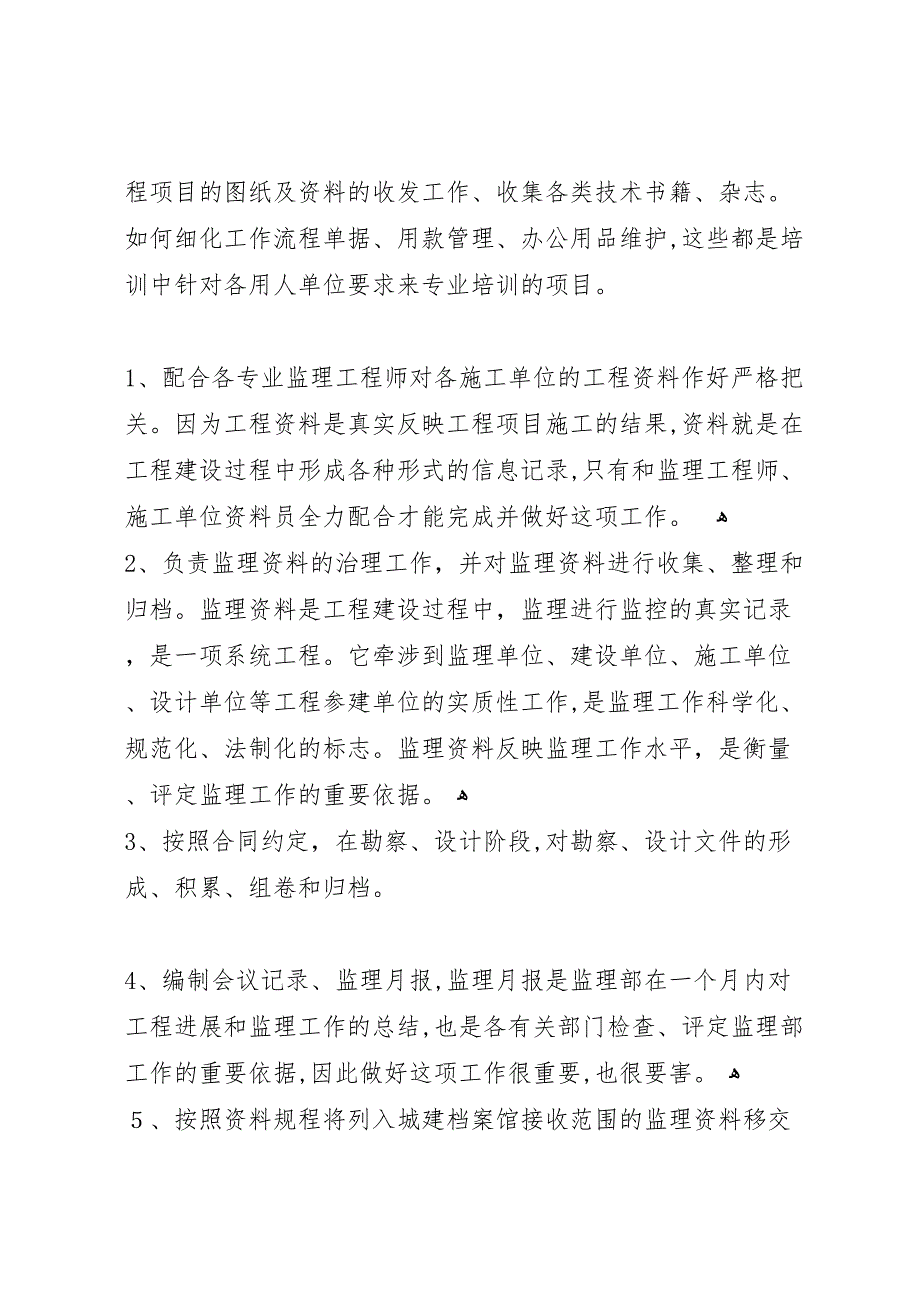 程项目的图纸及资料的收发工作、收集各类技术书籍、杂志。
如何细化工作流程单据、用款管理、办公用品维护,这些都是培
训中针对各用人单位要求来专业培训的项目。
1、配合各专业监理工程师对各施工单位的工程资料作好严格把
关。因为工程资料是真实反映工程项目施工的结果,资料就是在
工程建设过程中形成各种形式的信息记录,只有和监理工程师、
施工单位资料员全力配合才能完成并做好这项工作。 ﻫ
2、负责监理资料的治理工作，并对监理资料进行收集、整理和
归档。监理资料是工程建设过程中，监理进行监控的真实记录
，是一项系统工程。它牵涉到监理单位、建设单位、施工单位
、设计单位等工程参建单位的实质性工作,是监理工作科学化、
规范化、法制化的标志。监理资料反映监理工作水平，是衡量
、评定监理工作的重要依据。 ﻫ
3、按照合同约定，在勘察、设计阶段,对勘察、设计文件的形
成、积累、组卷和归档。
4、编制会议记录、监理月报,监理月报是监理部在一个月内对
工程进展和监理工作的总结,也是各有关部门检查、评定监理部
工作的重要依据,因此做好这项工作很重要,也很要害。 ﻫ
５、按照资料规程将列入城建档案馆接收范围的监理资料移交